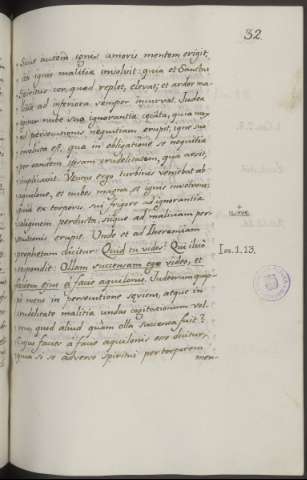 32
Sicut autem ignis amoris mentem erigit,
ita ignis malitiæ involvit: quia et Sanctus
Spiritus cor quod replet, elevat; et ardor ma-
litiæ ad inferiora semper incurvat. Judea
igitur nube suæ ignorantiæ cæcata, quia mox
ad persecutionis nequitiam erupit, igne suo
involuta est, quia in obligatione se nequitiæ
per eandem ipsam crudelitatem, qua arsit,
implicavit. Ventus ergo turbinis veniebat ab
aquilone, et nubes magna et ignis involvens;
quia ex torporis sui frigore ad ignorantiæ
caliginem perducta, usque ad malitiam per-
secutionis erupit. Unde et ad Jeremiam
prophetam dicitur: Quid tu vides? Qui illico
respondit: Ollam succensam ego video, et
faciem ejus a facie aquilonis. Judæorum quip-
pe mens in persecutione sæviens, atque in
crudelitate malitiæ undas cogitationum vol-
vens, quid aliud quam olla succensa fuit?
Cujus facies a facie aquilonis esse dicitur,
quia si se adverso spiritui per torporem
men-
Ier. 1. 13.